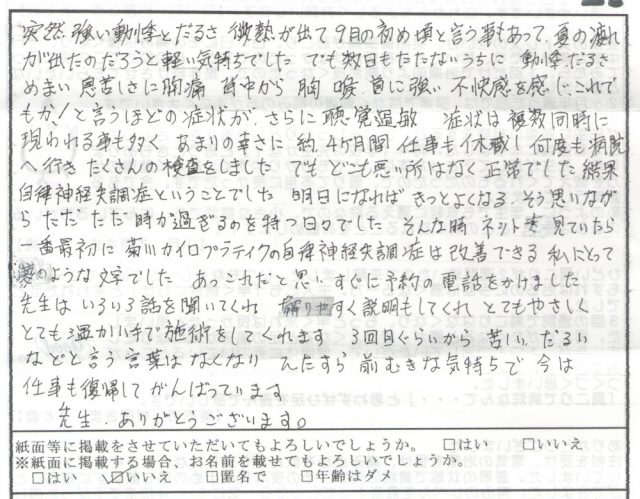 突然 強い動悸とだるさ 微熱が出て 9月の初め頃と言う事もあって、夏の疲れ
が出たのだろうと軽い気持ちでした でも数日もたたないうちに 動悸 だるさ
めまい 息苦しさに胸痛 背中から 胸 喉 首に強い 不快感を感じ、これで
もか!と言うほどの症状が、さらに聴覚過敏 症状は複数同時に
現われる事も多く あまりの辛さに 約4ヶ月間 仕事も休職し 何度も病院
へ行き たくさんの検査をしました でも どこも悪い所はなく 正常でした 結果
自律神経失調症ということでした 明日になれば きっとよくなる、そう思いなが
ら ただ ただ 時が過ぎるのを待つ日々でした そんな時 ネットを見ていたら
一番最初に 菊川カイロプラティクの自律神経失調症は改善できる 私にとって
夢のような文字でした あっこれだと思い すぐに予約の電話をかけました
先生は いろいろ話を聞いてくれ 解りやすく説明もしてくれ とてもやさしく
とても温かい手で施術をしてくれます 3回目ぐらいから 苦しい だるい
などと言う言葉はなくなり 前むきな気持ちで 今は
仕事も復帰して がんばっています
先生、ありがとうございます。
紙面等に掲載をさせていただいてもよろしいでしょうか。 □はい □いいえ
※紙面に掲載する場合、お名前を載せてもよろしいでしょうか。
□はい ☑いいえ □匿名で □年齢はダメ